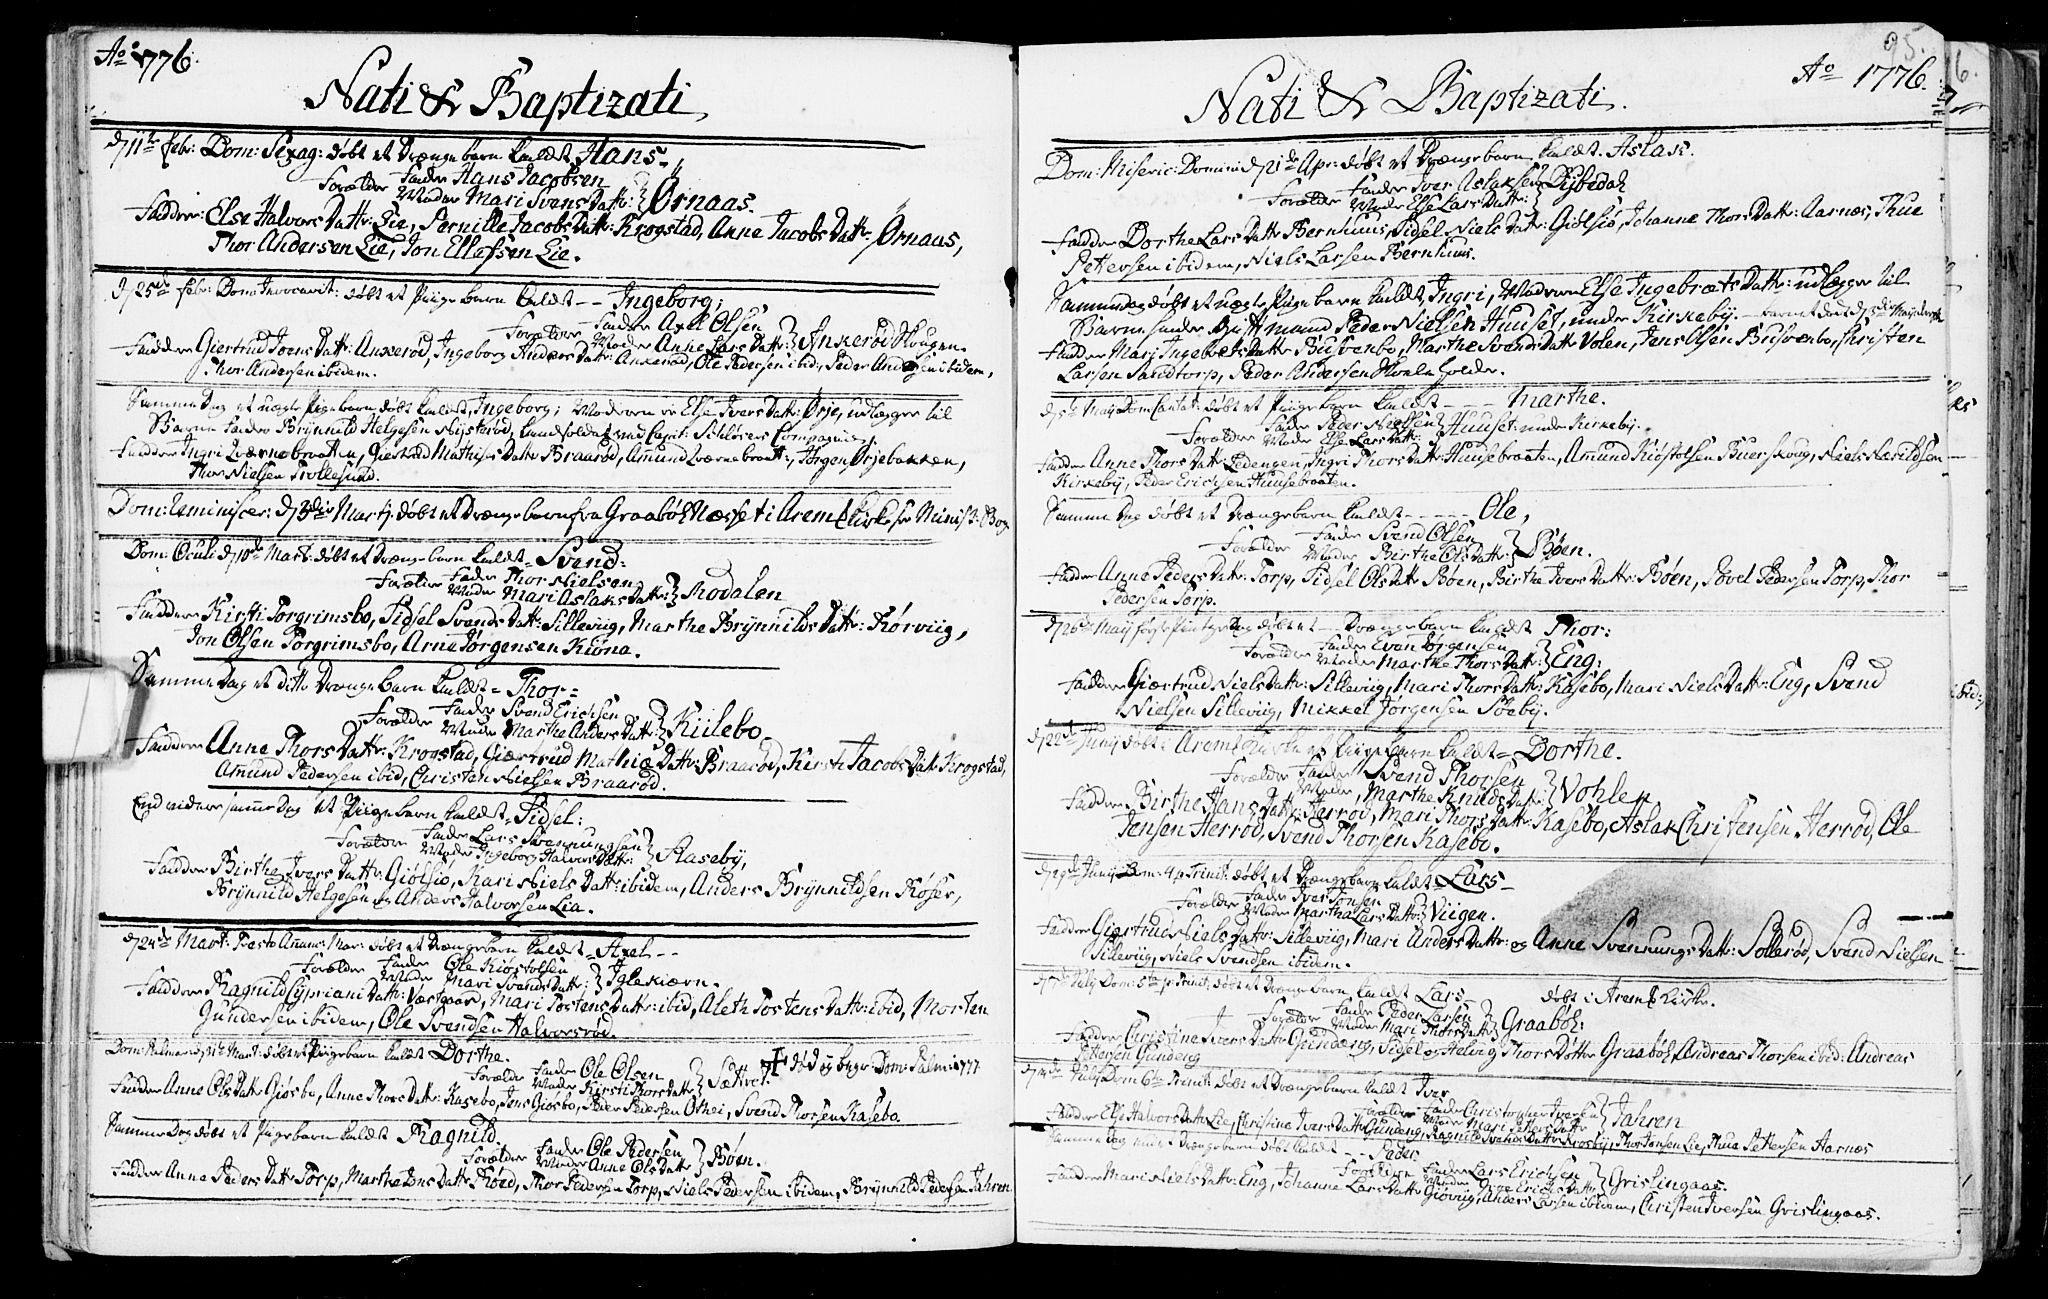 Ao 1776.
Nati & Baptizati
d 11te Febr: Dom: Sexag: døbt et Drængebarn kaldet Hans-
Forældre Fader Hans Jacobsen
Moder Mari Svens Dattr: } Ørnaas.
Faddere: Else Halvors Dattr: Lie, Pernille Jacobs Dattr: Krogstad, Anne Jacobs Dattr: Ørnaas,
Thor Andersen Lie, Jon Ellefsen Lie.
d 25de Febr: Dom: Invocavit: døbt et Piigebarn kaldet -- Ingeborg;
Forældre Fader Axel Olsen
Moder Anne Lars Dattr: } Ankerød Skougen.
Faddere Giertrud Joens Dattr: Ankerød, Ingeborg Anders Dattr: Ankerød, Ole Pedersen ibid:, Peder Andersen ibidem,
Thor Andersen ibidem.
Samme Dag et uægte Piigebarn døbt kaldet, Ingeborg; Moderen er Else Ivers Dattr: Ørje, udlegger til
Barne Fader Brynnild Helgesen Nysterød, Landsoldat ved Capit: Compagnie.
Faddere Ingri Qværnebraaten, Giertrud Mathis Dattr: Braarød, Amund Qværnebraat:, Jørgen Ørjebakken,
Thor Nielsen Trollesund.
Dom: Reminiscer: d 3die Martj døbt et Drængebarn fra Graabøl Næsset i Aremk Kirke see Minist: Bog
Dom: Oculi d 10de Mart: døbt et Drængebarn kaldet = Svend:
Forældre Fader Thor Nielsen
Moder Mari Aslaks Dattr: } Modalen
Faddere Kirsti Torgrimsbo, Sidsel Svends Dattr: Silleviig, Marthe Brynnilds Dattr: Kørviig,
Jon Olsen Torgrimsbo, Arne Jørgensen Kiøna.
Samme Dag et ditto Drængebarn kaldet = Thor =
Forældre Fader Svend Erichsen
Moder Marthe Anders Dattr: } Kiilebo
Faddere Anne Thors Dattr: Krogstad, Giærtrud Mathiæ Dattr: Braarød, Kirsti Jacobs Datt Krogstad,
Amund Pedersen ibid, Christen Nielsen Braarød.
End videre samme Dag et Piigebarn kaldet = Sidsel:
Forældre Fader Lars Svennungsen
Moder Ingeborg Halvors Dattr: } Aaseby,
Faddere Birthe Ivers Dattr: Giølsiø, Mari Niels Dattr: ibidem, Anders Brynnildsen Køser,
Brynnild Helgesen og Anders Halvorsen Lia.
d 24de Mart: Festo Annunc: Mar: døbt et Drængebarn kaldet = Axel --
Forældre Fader Ole Kiøstolsen
Moder Mari Svends Dattr: } Iglekiærn.
Faddere Ragnild Cypriani Dattr: Væstgaard, Mari Tostens Dattr: ibid, Aleth Tostens Dattr: ibid, Morten
Gundersen ibidem, Ole Svendsen Halvorsrød.
Dom: Palmar: d 31te Mart: døbt et Piigebarn kaldet Dorthe.
Forældre Fader Ole Olsen
Moder Kirsti Thors Dattr: } Sættre.
✝ død og begr: Dom: Palm: 1777
Faddere Anne Ols Dattr Giøsbo, Anne Thors Dattr: Kasebo, Jens Giøsbo, Peder Pedersen Othei, Svend Thorsen Kasebo.
Samme Dag døbt et Piigebarn kaldet Ragnild.
Forældre Fader Ole Pedersen
Moder Anne Ols Dattr } Bøen.
Faddere Anne Peders Dattr Torp, Marthe Jens Dattr Thoed, Thor Pedersen Torp, Niels Pedersen ibidem, Brynnild Pedersen Jahren
95.
Ao 1776.
Nati & Baptizati.
Dom: Miseric: Domini d 21de Apr: døbt et Drængebarn kaldet Aslak.
Forældre Fader Iver Aslaksen
Moder Else Lars Dattr: } Dybedal
Faddere Dorthe Lars Dattr Bernhuus, Sidsel Niels Dattr: Giølsiø, Johanne Thors Dattr: Aarnæs, Thue
Pettersen ibidem, Niels Larsen Bernhuus.
Samme Dag døbt et uægte Piigebarn kaldet, Ingri, Moderen Else Ingebræts Dattr: udlegger til
Barne Fader Gift mand Peder Nielsen Huuset, under Kirkeby.
Faddere Mari Ingebrets Dattr Busvenbo, Marthe Svends Dattr Volen, Jens Olsen Busvenbo, Christen
Larsen Sandtorp, Peder Andersen
d 5te Maij Dom: Cantat: døbt et Piigebarn kaldet --- Marthe.
Forældre Fader Peder Nielsen
Moder Else Lars Dattr: } Huuset: under Kirkeby.
Faddere Anne Thors Dattr Ledengen, Ingri Thors Dattr: Huusebraaten, Amund Kiøstolsen Buerskoug, Niels Nærildsen
Kirkeby, Peder Erichsen Huusebraaten.
Samme Dag døbt et Drængebarn kaldet ---- Ole,
Forældre Fader Svend Olsen
Moder Birthe Ols Dattr: } Bøen.
Faddere Anne Peders Dattr: Torp, Sidsel Ols Dattr Bøen, Birthe Ivers Dattr: Bøen, Povel Pedersen Torp, Thor
Pedersen Torp.
d 26de Maij første Pintze Dag døbt et -- Drængebarn kaldet Thor:
Forældre Fader Even Jørgensen
Moder Marthe Thors Dattr: } Eng:
Faddere Giærtrud Niels Dattr: Silleviig, Mari Thors Dattr: Kasebo, Mari Niels Dattr: Eng, Svend
Nielsen Silleviig, Mikkel Jørgensen Søeby.
d 22de Junij døbt i Aremk Kirke et Piigebarn kaldet = Dorthe.
Forældre Fader Svend Thorsen
Moder, Marthe Knuds Dattr: } Vohlen
Faddere Birthe Hans Dattr: Herrød, Mari Thors Dattr: Kasebo, Aslak Christensen Herrød, Ole
Jensen Herrød, Svend Thorsen Kasebo.
d 29de Junij Dom: 4 p Trinit: døbt et Drængebarn kaldet = Lars -
Forældre Fader Iver Jonsen
Moder Martha Lars Dattr: } Viigen.
Faddere Giertrud Niels Dattr: Silleviig, Mari Anders Dattr: og Anne Svennungs Dattr: Sollerød, Svend Nielsen
Silleviig, Niels Svendsen ibidem.
d 7de July Dom: 5te p: Trinit: døbt et Drængebarn kaldet Lars døbt i Aremk Kirke.
Forældre Fader Peder Larsen
Moder Mari Thors Dattr } Graabøl:
Faddere Christine Ivers Dattr Gundeng, Sidsel og Helvig Thors Døttre Graabøl, Andreas Thorsen ibid: Andreas
Pettersen Gundeng
d 14de July Dom 6te Trinit: døbt et Drængebarn kaldet Iver
Forældre Fader Christopher Iversen
Moder Mari Petters Dattr } Jahren
Faddere Else Halvors Dattr Lie, Christine Ivers Dattr Gundeng, Ragnild Dattr Krosby, Thor Jonsen Lie, Thue Pettersen Aarnæs
Samme Dag end et Drængebarn døbt kaldet -- Peder
Forældre Fader Lars Erichsen
Moder Gune Erichs Dattr } Grislingaas.
Faddere Mari Niels Dattr: Eng, Johanne Lars Dattr Giøviig, Anders Larsen ibidem, Christen Iversen Grislingaas.